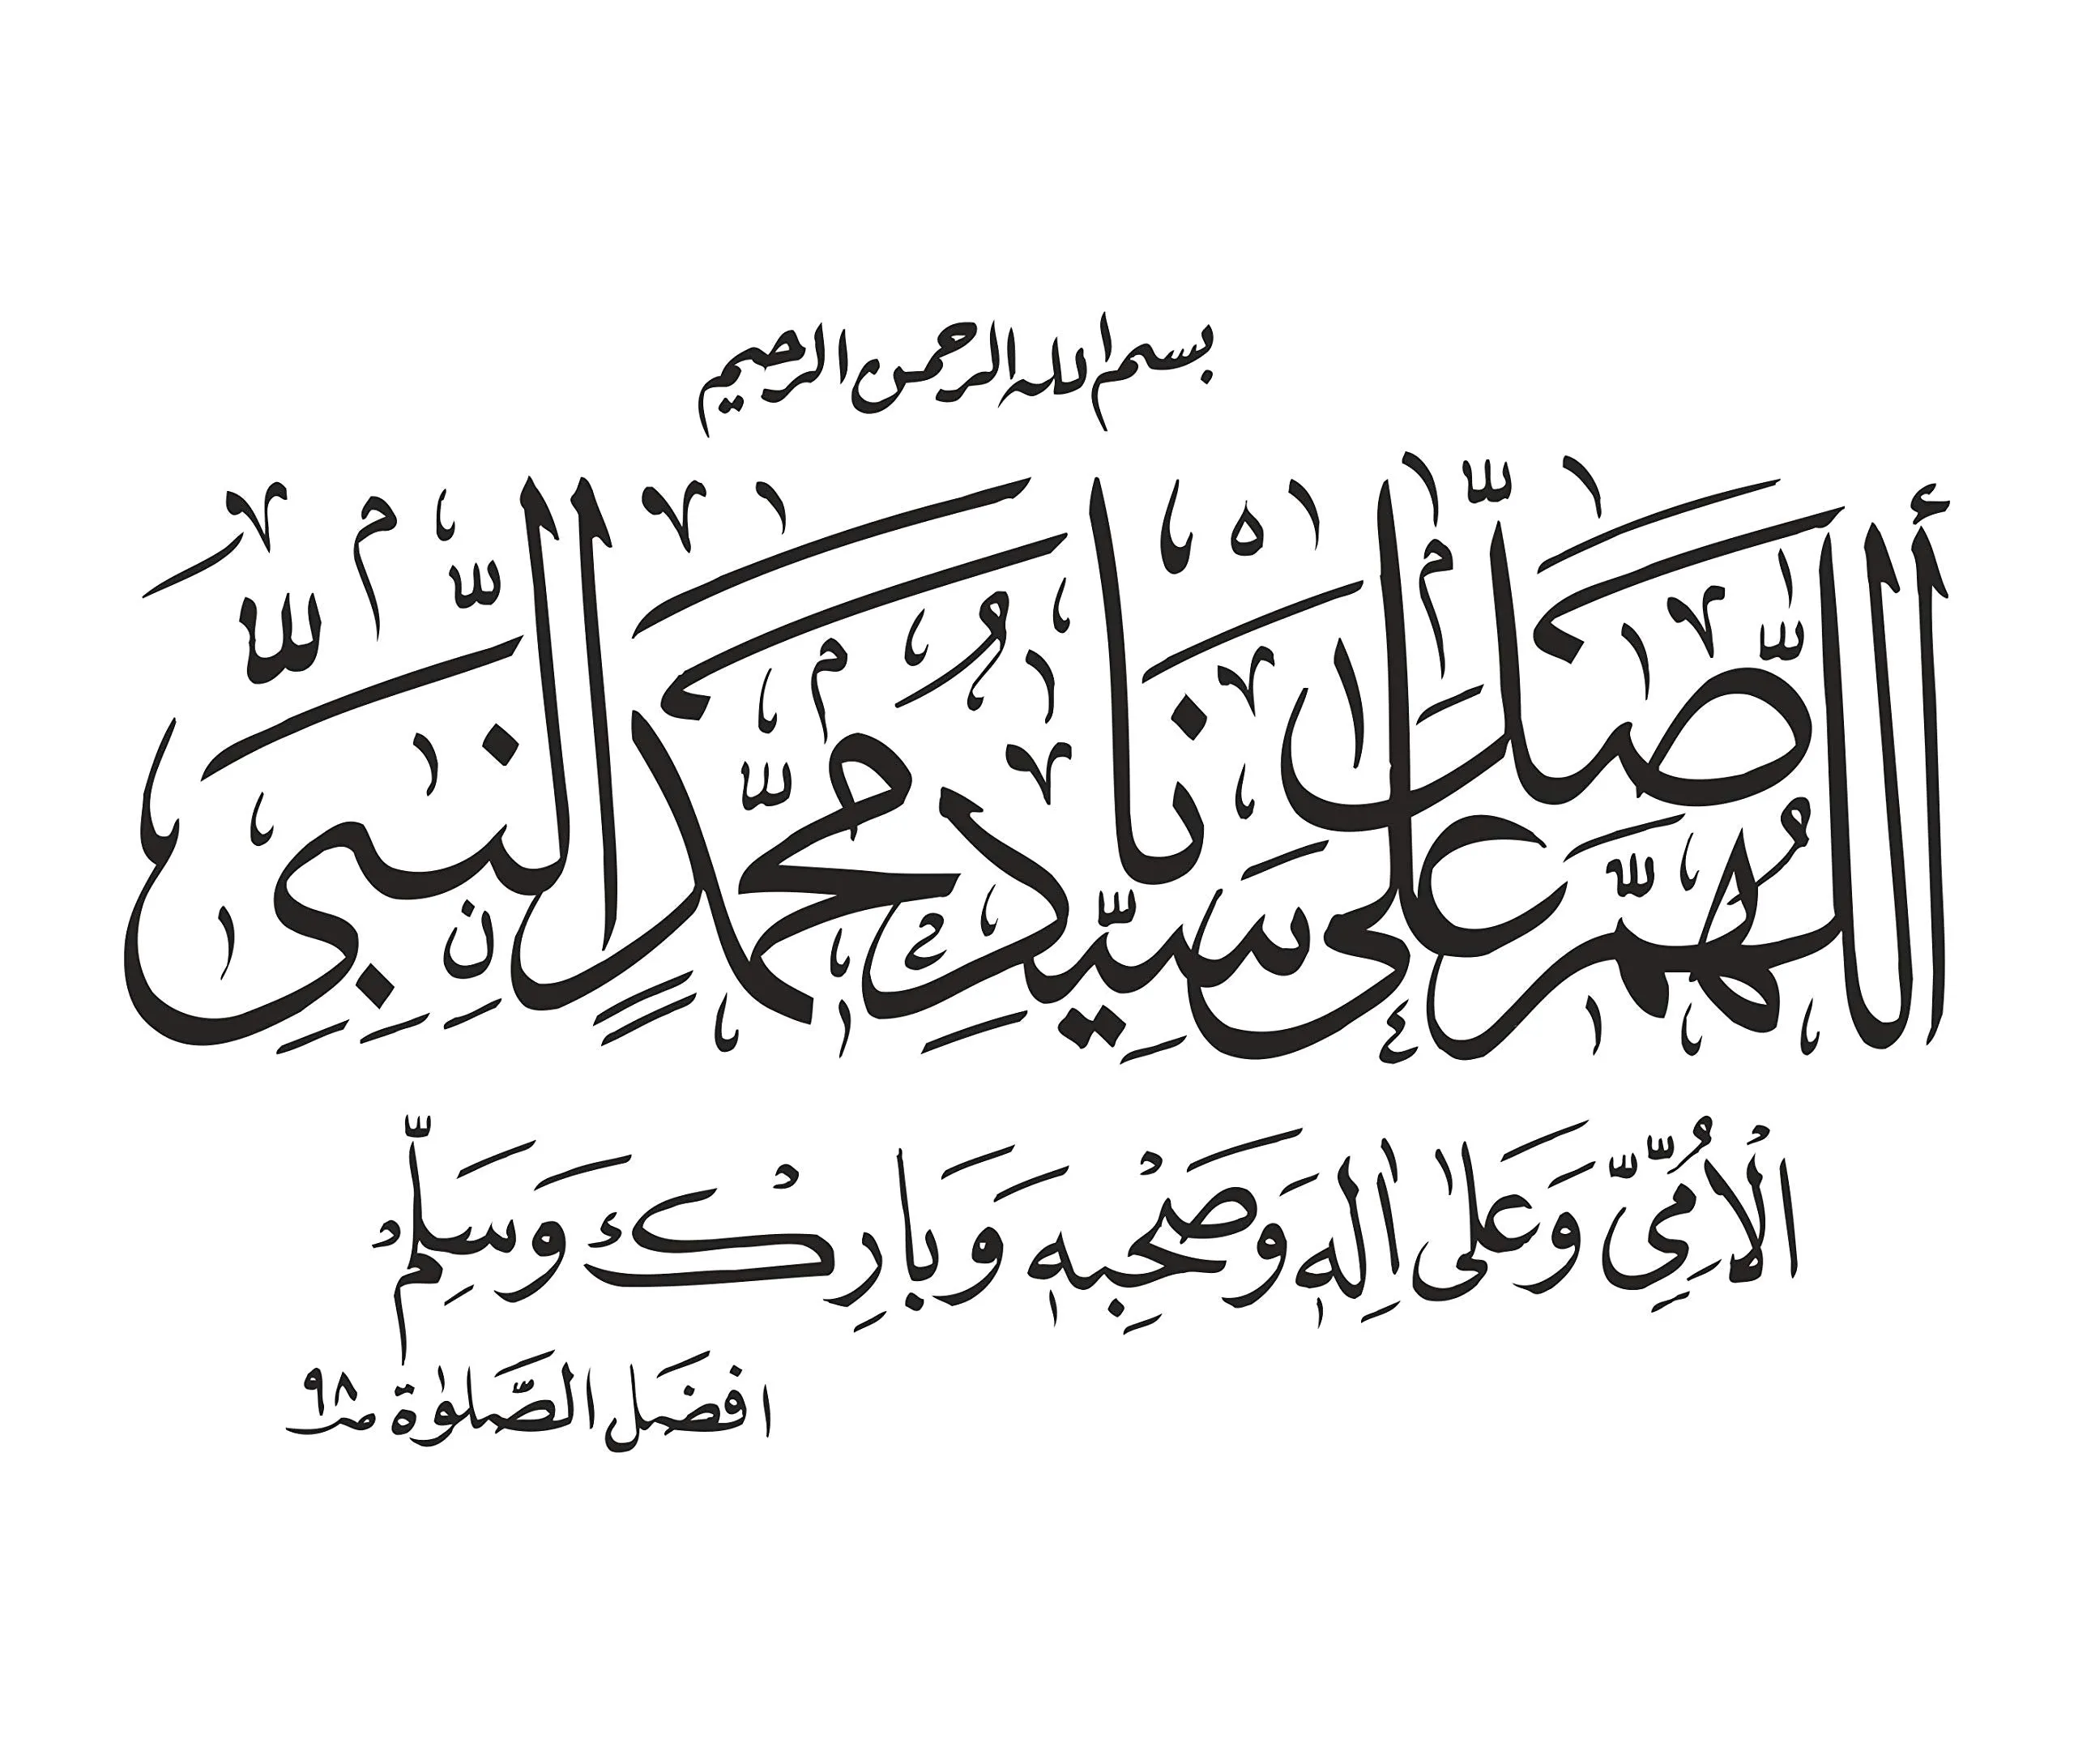 بسم الله الرحمن الرحيم
أَللّٰهُمَّ صَلِّ عَلٰى سَيِّدِنَا مُحَمَّدٍ النَّبِيِّ
الْأُمِّيِّ وَعَلٰى اٰلِهِ وَصَحْبِهِ وَبَارِكْ وَسَلِّمْ
افضل الصلوة ٩٨